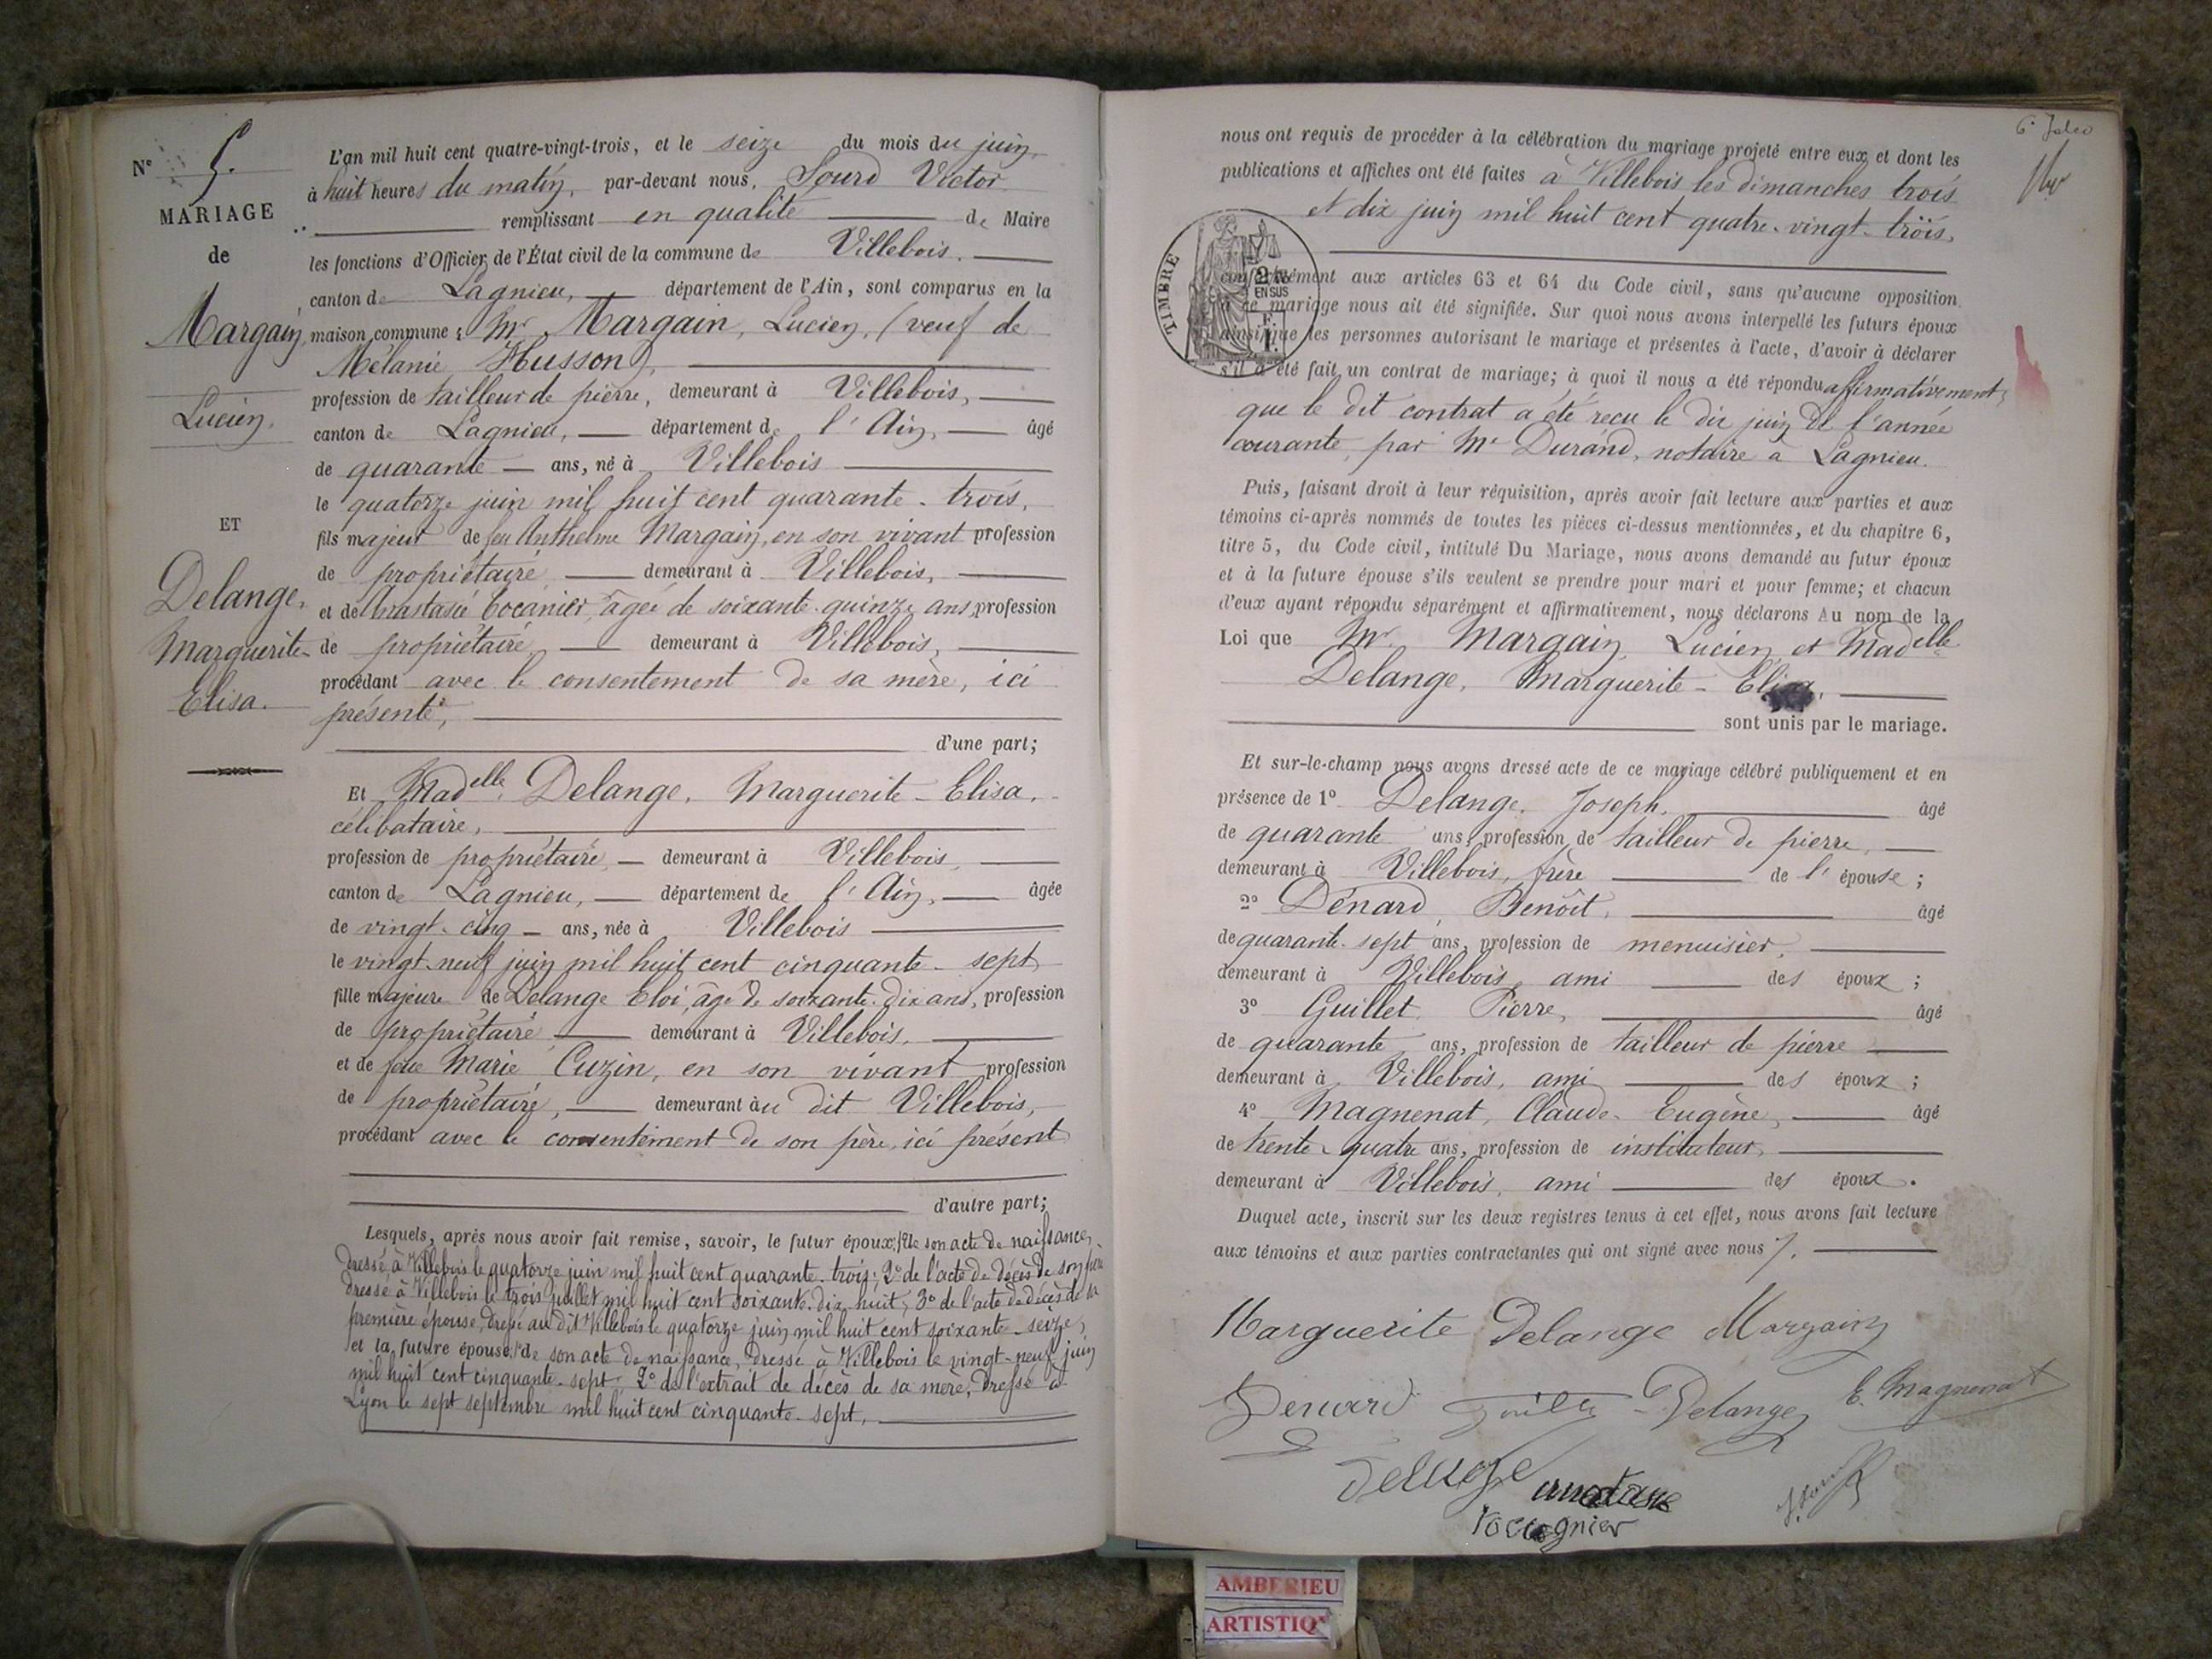 N° 5.
MARIAGE
de
Margain,
Lucien,
ET
Delange,
Marguerite-
Elisa.
L'an mil huit cent quatre-vingt-trois, et le seize du mois du juin,
à huit heures du matin, par-devant nous, Sourd Victor
remplissant en qualité de Maire
les fonctions d'Officier de l'État civil de la commune de Villebois.
canton de Lagnieu, département de l'Ain, sont comparus en la
maison commune : Mr Margain, Lucien, (veuf de
Mélanie Husson),
profession de tailleur de pierre, demeurant à Villebois,
canton de Lagnieu, département de l'Ain, âgé
de quarante ans, né à Villebois
le quatorze juin mil huit cent quarante-trois,
fils majeur de feu Anthelme Margain, en son vivant profession
de propriétaire demeurant à Villebois,
et de Anastasie Cocanier, âgée de soixante-quinze ans, profession
de propriétaire, demeurant à Villebois,
procédant avec le consentement de sa mère, ici
présente,
d'une part;
Et Madelle Delange, Marguerite-Elisa,
célibataire,
profession de propriétaire demeurant à Villebois,
canton de Lagnieu, département de l'Ain, âgée
de vingt-cinq ans, née à Villebois
le vingt-neuf juin mil huit cent cinquante-sept
fille majeure de Delange Eloi, âgé de soixante-dix ans, profession
de propriétaire demeurant à Villebois,
et de feue Marie Cuzin, en son vivant profession
de propriétaire, demeurant àu dit Villebois,
procédant avec le consentement de son père, ici présent
d'autre part;
Lesquels, après nous avoir fait remise, savoir, le futur époux, 1° de son acte de naissance,
dressé à Villebois le quatorze juin mil huit cent quarante-trois; 2° de l'acte de décès de son père
dressé à Villebois le trois juillet mil huit cent soixante-dix-huit; 3° de l'acte de décès de sa
première épouse, dressé au dit Villebois le quatorze juin mil huit cent soixante-seize,
et la future épouse, 1° de son acte de naissance, dressé à Villebois le vingt-neuf juin
mil huit cent cinquante-sept 2° de l'extrait de décès de sa mère, dressé à
Lyon le sept septembre mil huit cent cinquante-sept,
nous ont requis de procéder à la célébration du mariage projeté entre eux et dont les
publications et affiches ont été faites à Villebois les dimanches trois
et dix juin mil huit cent quatre-vingt-trois,
TIMBRE
2/10
EN SUS
conformément aux articles 63 et 64 du Code civil, sans qu'aucune opposition
à ce mariage nous ait été signifiée. Sur quoi nous avons interpellé les futurs époux
ainsi que les personnes autorisant le mariage et présentes à l'acte, d'avoir à déclarer
s'il a été fait un contrat de mariage; à quoi il nous a été répondu affirmativement,
que le dit contrat a été reçu le dix juin de l'année
courante, par Me Durand, notaire à Lagnieu.
Puis, faisant droit à leur réquisition, après avoir fait lecture aux parties et aux
témoins ci-après nommés de toutes les pièces ci-dessus mentionnées, et du chapitre 6,
titre 5, du Code civil, intitulé Du Mariage, nous avons demandé au futur époux
et à la future épouse s'ils veulent se prendre pour mari et pour femme; et chacun
d'eux ayant répondu séparément et affirmativement, nous déclarons Au nom de la
Loi que Mr Margain, Lucien et Madelle
Delange, Marguerite-Elisa,
sont unis par le mariage.
Et sur-le-champ nous avons dressé acte de ce mariage célébré publiquement et en
présence de 1° Delange, Joseph, âgé
de quarante ans, profession de tailleur de pierre,
demeurant à Villebois, frère de l'épouse;
2° Dénard, Benoît, âgé
de quarante-sept ans, profession de menuisier,
demeurant à Villebois, ami des époux;
3° Guillet Pierre, âgé
de quarante ans, profession de tailleur de pierre
demeurant à Villebois, ami des époux;
4° Magnenat, Claude-Eugène, âgé
de trente-quatre ans, profession de instituteur,
demeurant à Villebois, ami des époux.
Duquel acte, inscrit sur les deux registres tenus à cet effet, nous avons fait lecture
aux témoins et aux parties contractantes qui ont signé avec nous.
Marguerite Delange Margain
Denard Delange E. Magnenat
AMBERIEU
ARTISTIQ